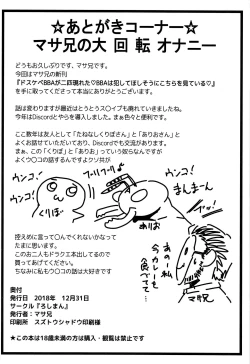 ☆あとがきコーナー☆
マサ兄の大 回 転 オナニー
どうもお久しぶりです、マサ兄です。
今回はマサ兄の新刊
『ドスケベBBAが二匹現れた♡BBAは犯してほしそうにこちらを見ている♡』
を手に取ってくださって本当にありがとうございます。
話は変わりますが最近はとうとうス〇イプも廃れていきましたね。
今年はDiscordとやらを導入しました。まぁ色々と便利です。
ここ数年は友人として「たねなしくりぼさん」と「ありおさん」と
よくお話させていただいており、Discordでも交流があります。
まぁ、この「くりぼ」と「ありお」っていう奴らなんですが
よくウ〇コの話するんですよクソ共が
ウンコ!
ウンコ!
くりぼ
ブリブリブリ
ありお
ウンコ!
まんまーん
あの…私
今カレーを
食べてて…
マサ兄
控えめに言って〇んでくれないかなって
たまに思います。
このお二人もドラクエ本出してるので
買ってあげてください。
ちなみに私もウ〇コの話は大好きです
奥付
発行日 2018年 12月31日
サークル『ろしまん』
発行者:マサ兄
印刷所 スズトウシャドウ印刷様
★この本は18歳未満の方は購入・観覧は禁止です